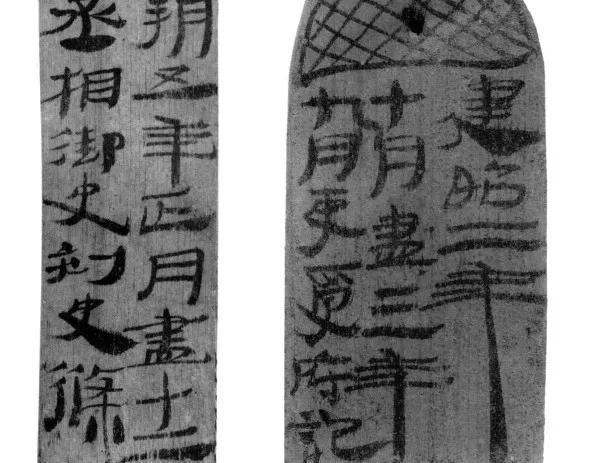 建昭二年
十月盡三年
九月吏受府記
朔五年正月盡十二
丞相御史刾史條